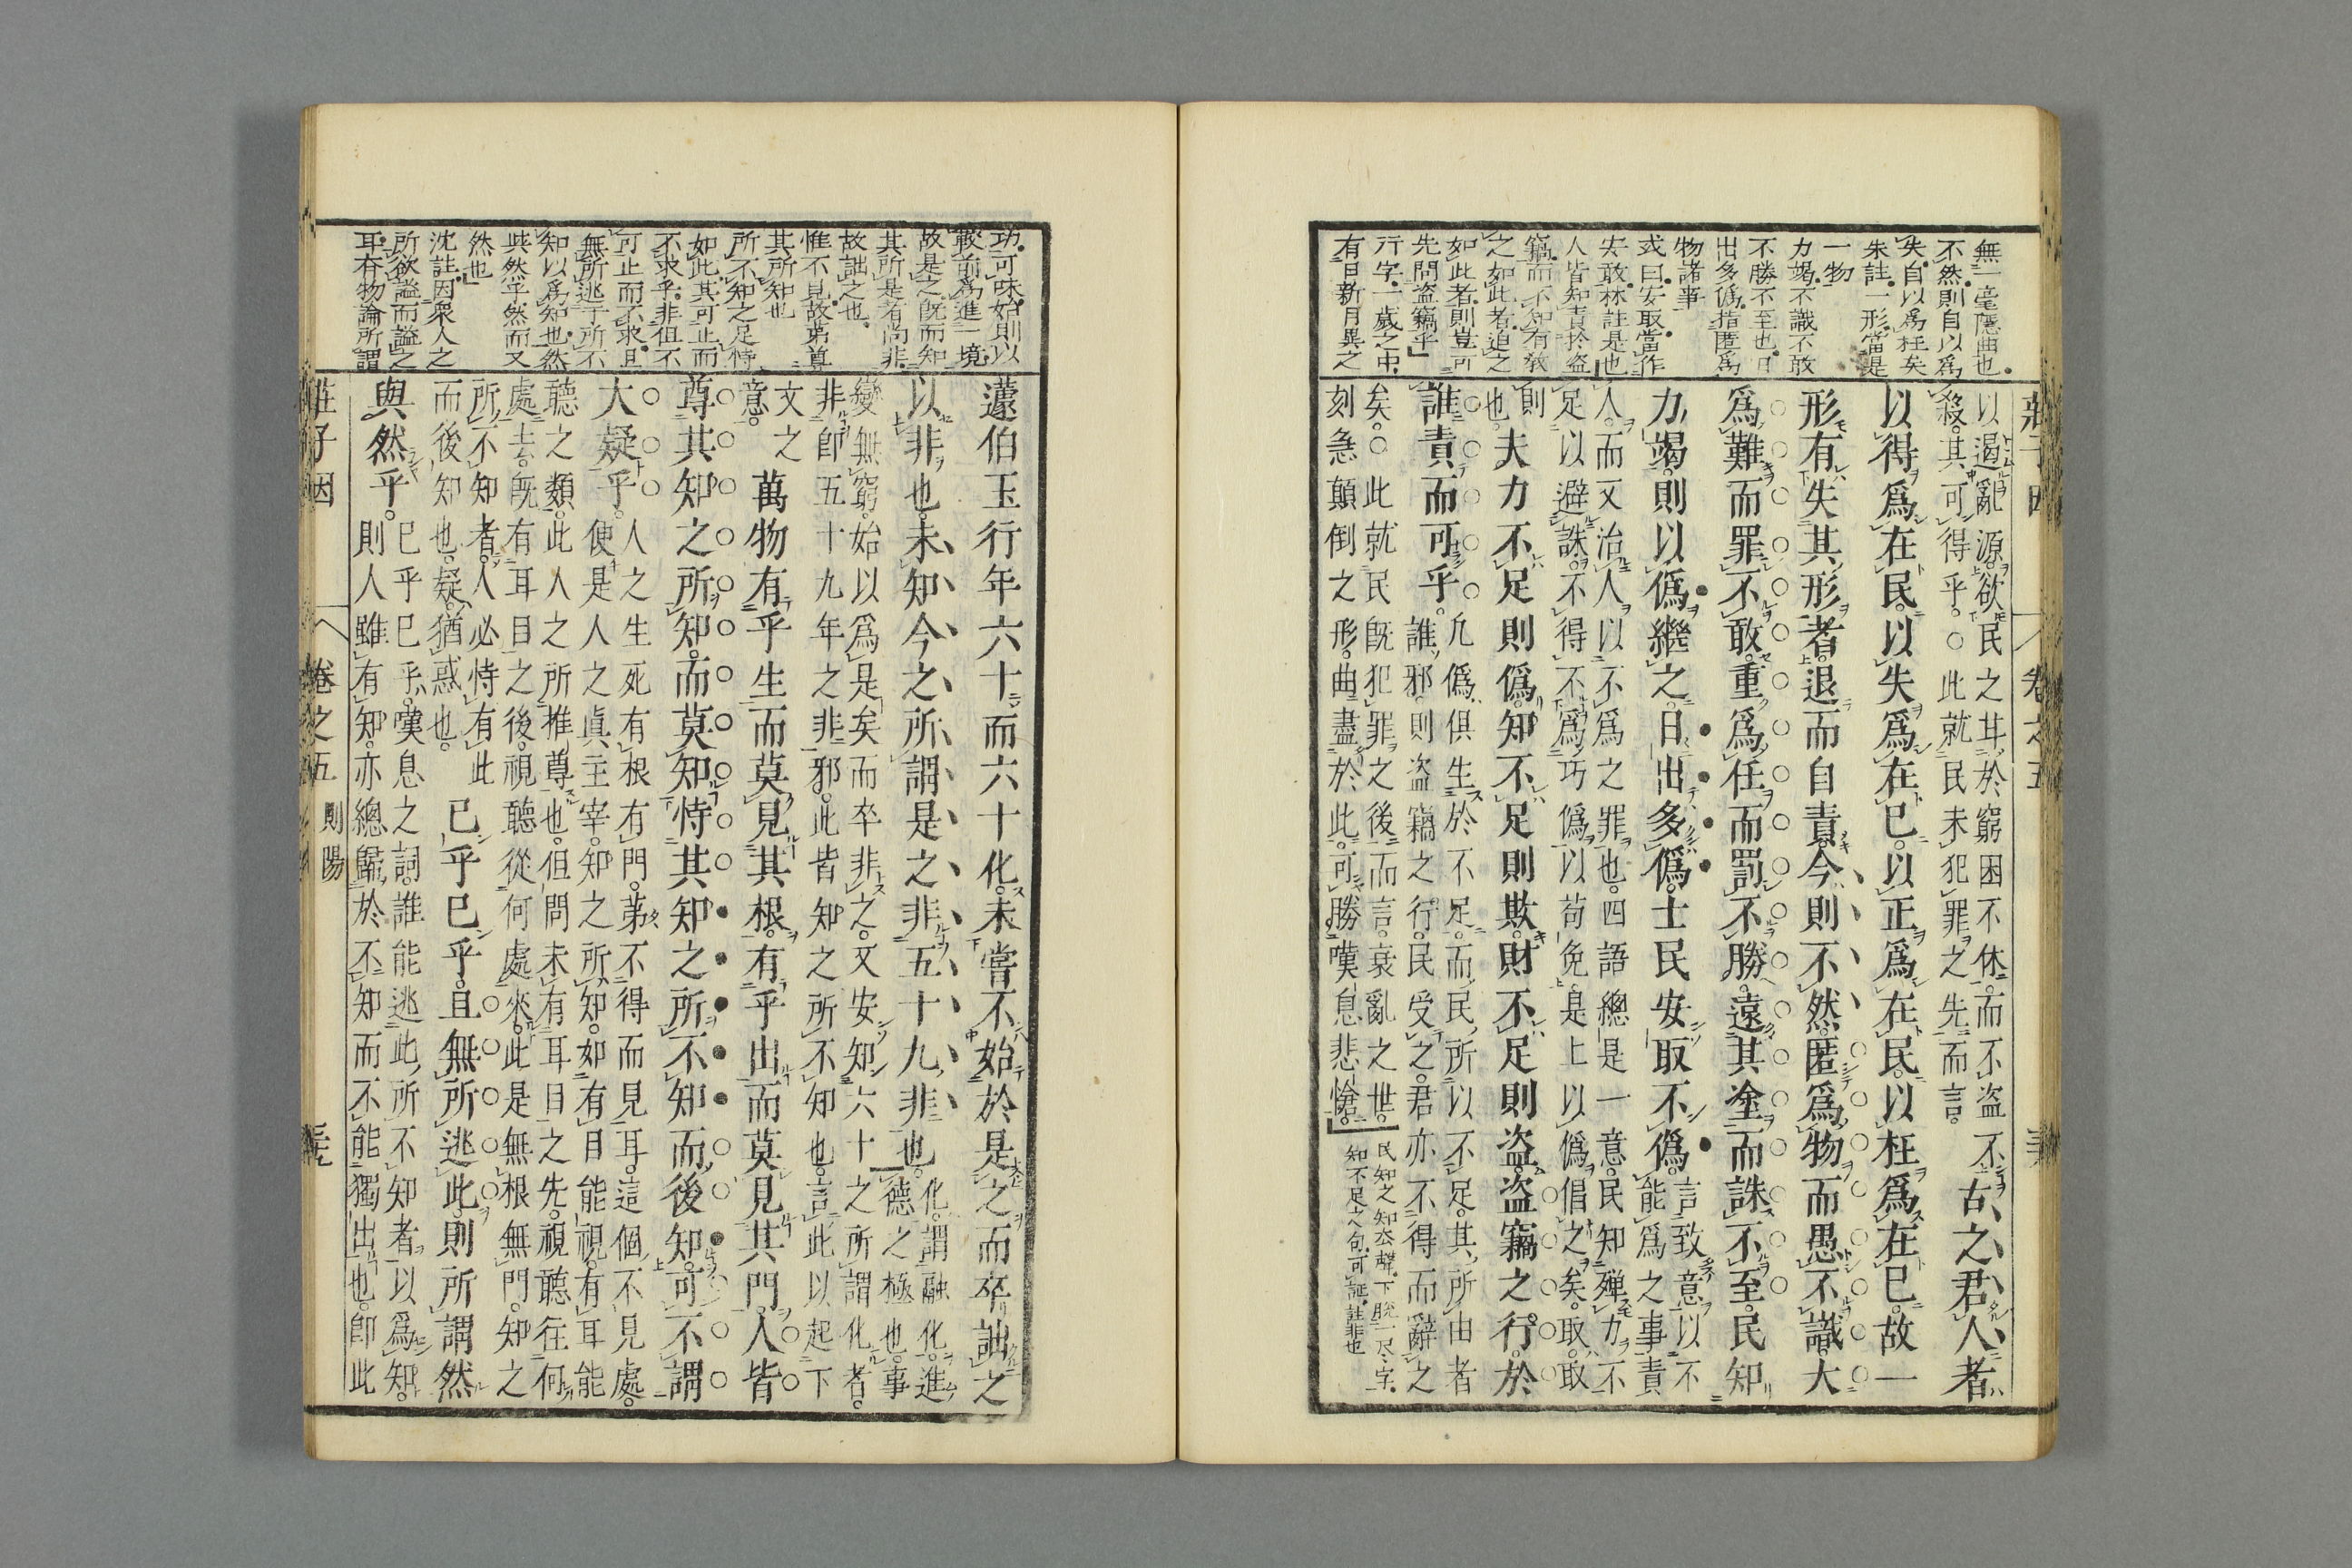 無一毫隱曲也
不然則自以爲
失自以爲枉矣
朱註一形當是
一物
力竭不識不敢
不勝不至也日
出多僞指匿爲
物諸事
或曰安取當作
安敢林註是也
人皆知責於盜
竊而不知有敎
之如此者迫之
如此者則豈可
先問盜竊乎
行字一歲之中
有日新月異之
莊子因 卷之五
以遏亂源欲民之甘於窮困不休而不盜不
殺其可得乎○此就民未犯罪之先而言
古之君人者
以得爲在民以失爲在已以正爲在民以枉爲在已故一
形有失其形者退而自責今則不然匿爲物而愚不識大
爲難而罪不敢重爲任而罰不勝遠其塗而誅不至民知
力竭則以僞繼之日出多僞士民安取不僞
言致意以不
能爲之事責
人而又治人以不爲之罪也四語總是一意民知殫力不
足以避誅不得不爲巧僞以苟免是上以僞倡之矣取取
則
也
夫力不足則僞知不足則欺財不足則盜盜竊之行於
誰責而可乎
凡僞俱生於不足而民所以不足其所由者
誰邪則盜竊之行民受之君亦不得而辭之
矣○此就民旣犯罪之後而言衰亂之世
刻急顛倒之形曲盡於此可勝嘆息悲愴
民知之知去聲下脫一民字
知不足之句可証註非也
功可味始則以
較前爲進一境
故是之旣而知
其所是者尚非
故詘之也
惟不見故第尊
其所知也
所不知之足恃
如此其可止而
不求乎非但不
可止而不求且
無所逃于所不
知以爲知也然
與然乎然而又
然也
沈註因衆人之
所欲謚而謚之
耳有物論所謂
蘧伯玉行年六十而六十化未嘗不始於是之而卒詘之
以非也未知今之所謂是之非五十九非也
化謂融化進
德之極也事
變無窮始以爲是矣而卒非之又安知六十之所謂化者
非卽五十九年之非邪此皆知之所不知也言此以起下
文之
意
萬物有乎生而莫見其根有乎出而莫見其門人皆
尊其知之所知而莫知恃其知之所不知而後知可不謂
大疑乎
人之生死有根有門第不得而見耳這個不見處
便是人之眞主宰知之所知如有目能視有耳能
聽之類此人之所推尊也但問未有耳目之先視聽往何
處去旣有耳目之後視聽從何處來此是無根無門知之
所不知者人必恃有此
而後知也疑猶惑也
已乎已乎且無所逃此則所謂然
與然乎
已乎已乎嘆息之詞誰能逃此所不知者以爲知
則人雖有知亦總歸於不知而不能獨出也卽此
莊子因 卷之五 則陽